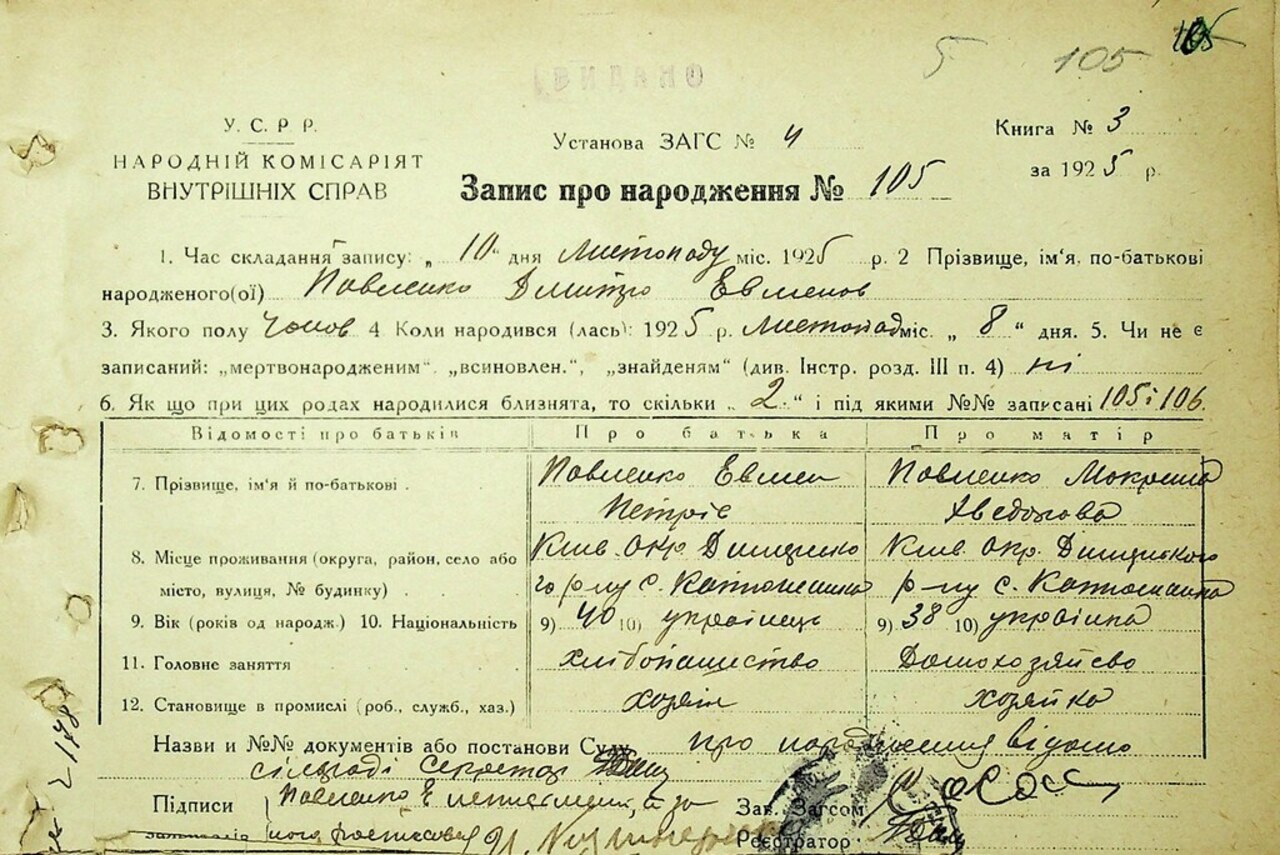 5 105 105
ВИДАНО
У. С. Р. Р.
НАРОДНІЙ КОМІСАРІЯТ
ВНУТРІШНІХ СПРАВ
Установа ЗАГС № 4
Книга № 3
за 1925 р.
Запис про народження № 105
1. Час складання запису: „ 10 " дня Листопаду міс. 1925 р. 2 Прізвище, ім'я, по-батькові
народженого(ої) Павленко Дмитро Евменов
3. Якого полу Чолов 4 Коли народився (лась): 1925 р. Листопад міс. „ 8 " дня. 5. Чи не є
записаний: „мертвонародженим". „всиновлен.", „знайденям" (див. Інстр. розд. III п. 4) ні
6. Як що при цих родах народилися близнята, то скільки „ 2 " і під якими №№ записані 105 і 106.
Відомості про батьків Про батька Про матір
7. Прізвище, ім'я й по-батькові . Павленко Евмен Павленко Мокрина
Петрів
8. Місце проживання (округа, район, село або Київ. Окр. Димирсько Київ. Окр. Димирського
місто, вулиця, № будинку) . . го р-ну с. Катюжанка р-ну с. Катюжанка
9. Вік (років од народж.) 10. Національність 9) 40 10) украінець 9) 38 10) украінка
11. Головне заняття . . . хлібопашество Домохозяйсво
12. Становище в промислі (роб., служб., хаз.) хозяін хозяйка
Назви и №№ документів або постанови Суду про народження відомо
сільраді Секретар
Підписи Павленко Е неписьмени, а за Зав. Загсом
його росписовся Реєстратор